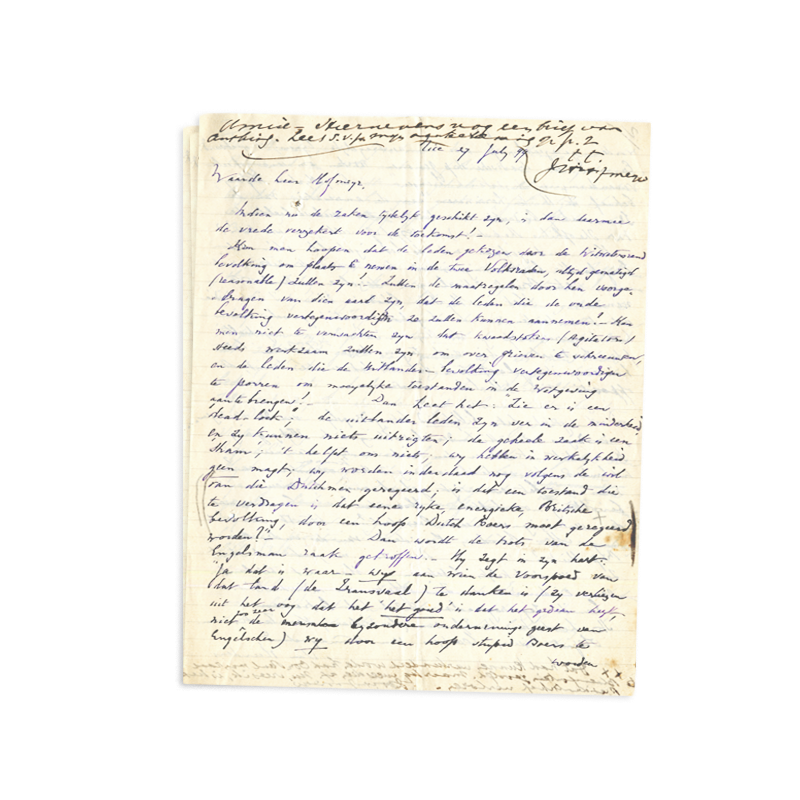 Amice – Hiernevens nog een brief van
Ansting. Lees s.v.p. myn aantekening op p. 2
27 July 99 t.t.
J H Hofmeyr
Waarde heer Hofmeyr.
Indien nu de zaken tydelyk geschikt zyn, is dan hiermee
de vrede verzekert voor de toekomst! –
Kan men hoopen dat de leden gekozen door de Witwatersrand
bevolking om plaats te nemen in de twee Volksraden, altyd gematigd
(reasonable) zullen zyn! Zullen de maatregelen door hen voorge-
dragen van dien aard zyn, dat de leden die de oude
bevolking vertegenwoordigen ze zullen kunnen aannemen! – Kan
men niet te verwachten zyn dat kwaadstokers (Agitators)
steeds werkzaam zullen zyn om over grieven te schreeuwen,
en de leden die de Uitlander-bevolking vertegenwoordigen
te porren om moeyelyke toestanden in de wetgeving
aan te brengen! – Dan heet het: "Zie er is een
dead-lock"; de uitlander leden zyn ver in de minderheid
en zy kunnen niets uitrigten; de geheele zaak is een
sham; 't helpt ons niets; wy hebben in werkelykheid
geen magt; wy worden inderdaad nog volgens de wil
van die Dutchmen geregeerd; is dit een toestand die
te verdragen is dat eene ryke, energieke, Britische
bevolking, door een hoop Dutch Boers moet geregeerd
worden?" – Dan wordt de trots van de
Engelsman raak getroffen. – Hy zegt in zyn hart:
"Ja dat is waar – wy aan wien de voorspoed van
dat land (de Transvaal) te danken is (zy verliezen
uit het oog dat het 'het goud' is dat het gedaan heeft,
niet de byzondere ondernemings geest van
Engelschen) wy door een hoop stupid Boers te
worden